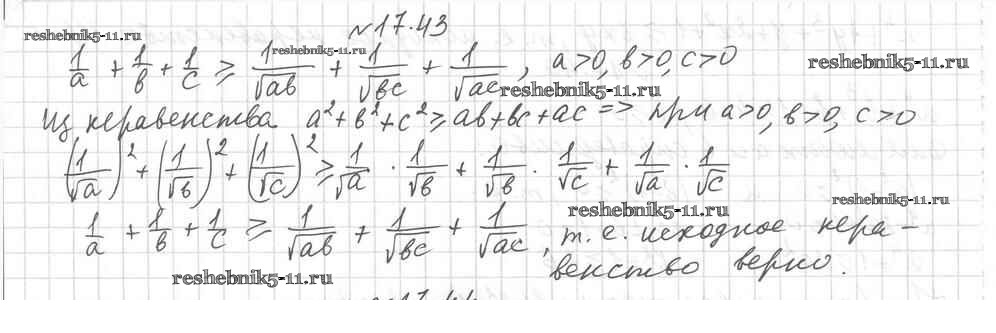 №17.43
reshebnik5-11.ru
1/a + 1/в + 1/c ≥ 1/√aв + 1/√вc + 1/√ac, a>0, в>0, c>0
reshebnik5-11.ru
reshebnik5-11.ru
reshebnik5-11.ru
Из неравенства a²+в²+c² ≥ aв+вc+ac => при a>0, в>0, c>0
(1/√a)² + (1/√в)² + (1/√c)² ≥ 1/√a · 1/√в + 1/√в · 1/√c + 1/√a · 1/√c
reshebnik5-11.ru
reshebnik5-11.ru
1/a + 1/в + 1/c ≥ 1/√aв + 1/√вc + 1/√ac, т.е. исходное нера-
венство верно.
reshebnik5-11.ru